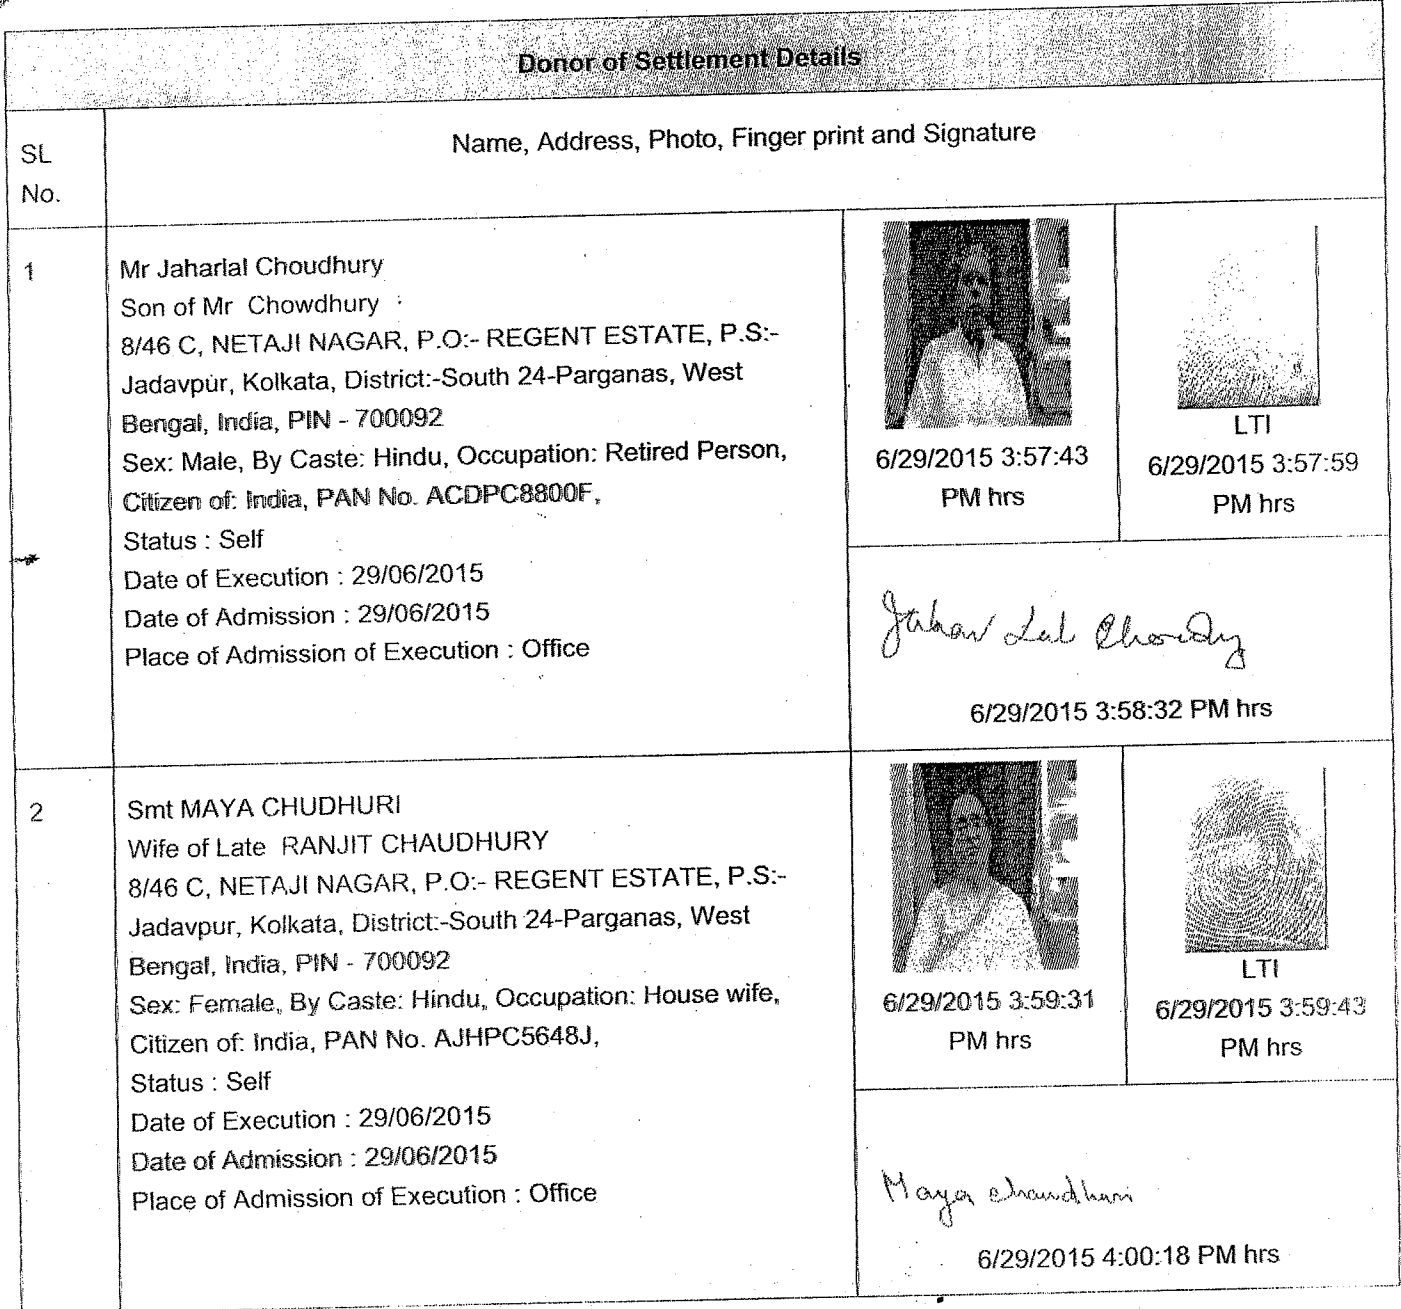 Donor of Settlement Details
SL No.
Name, Address, Photo, Finger print and Signature
1
Mr Jaharlal Choudhury
Son of Mr Chowdhury
8/46 C, NETAJI NAGAR, P.O:- REGENT ESTATE, P.S:-
Jadavpur, Kolkata, District:-South 24-Parganas, West
Bengal, India, PIN - 700092
Sex: Male, By Caste: Hindu, Occupation: Retired Person,
Citizen of: India, PAN No. ACDPC8800F,
Status : Self
Date of Execution : 29/06/2015
Date of Admission : 29/06/2015
Place of Admission of Execution : Office
6/29/2015 3:57:43
PM hrs
LTI
6/29/2015 3:57:59
PM hrs
Jahar Lal
6/29/2015 3:58:32 PM hrs
2
Smt MAYA CHUDHURI
Wife of Late RANJIT CHAUDHURY
8/46 C, NETAJI NAGAR, P.O:- REGENT ESTATE, P.S:-
Jadavpur, Kolkata, District:-South 24-Parganas, West
Bengal, India, PIN - 700092
Sex: Female, By Caste: Hindu, Occupation: House wife,
Citizen of: India, PAN No. AJHPC5648J,
Status : Self
Date of Execution : 29/06/2015
Date of Admission : 29/06/2015
Place of Admission of Execution : Office
6/29/2015 3:59:31
PM hrs
LTI
6/29/2015 3:59:43
PM hrs
Maya Chaudhuri
6/29/2015 4:00:18 PM hrs